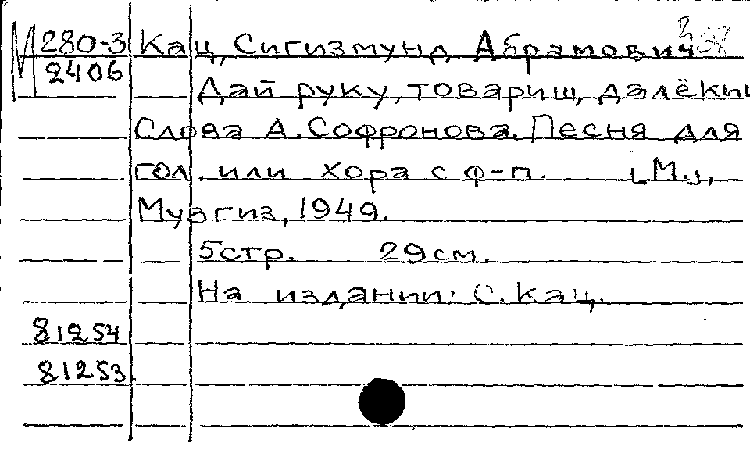 М 280-3 Кац, Сигизмунд Абрамович
2406
Дай руку, товарищ далёкий
Слова А. Софронова. Песня для
гол. или хора с ф-п. [М.],
Музгиз, 1949.
5стр. 29см.
На издании: С. Кац.
81254
81253